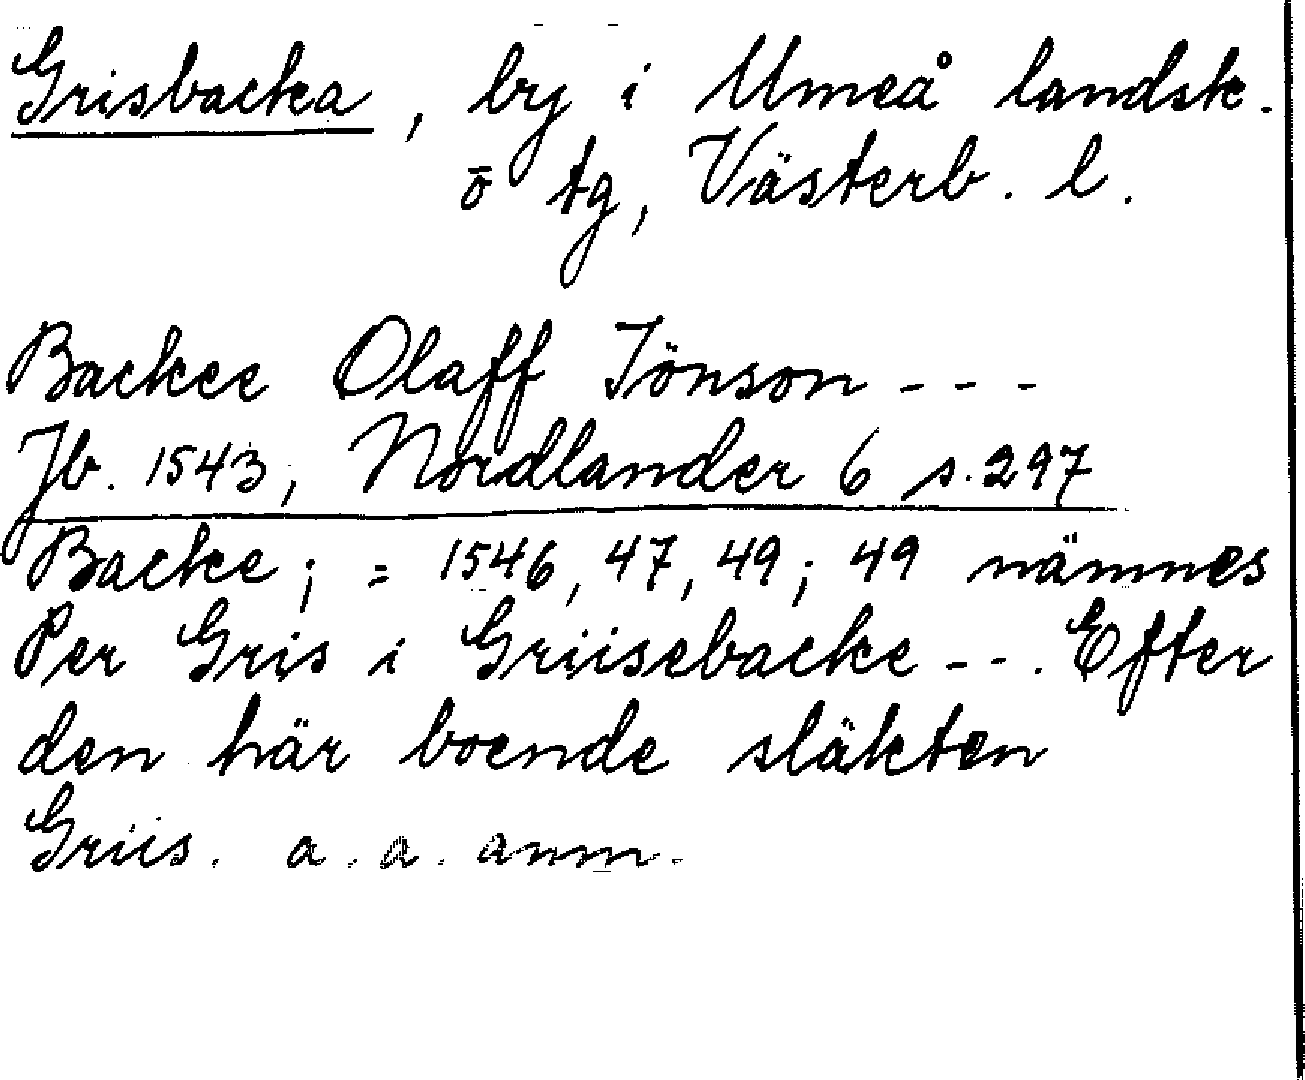 Grisbacka, by i Umeå landsk.
o tg, Västerb. l.
Backee Olaff Jönson - - -
Jb. 1543, Nordlander 6 s. 297
Backe; = 1546, 47, 49; 49 nämnes
Per Gris i Griisebacke - - . Efter
den här boende släkten
Griis. a. a. anm.